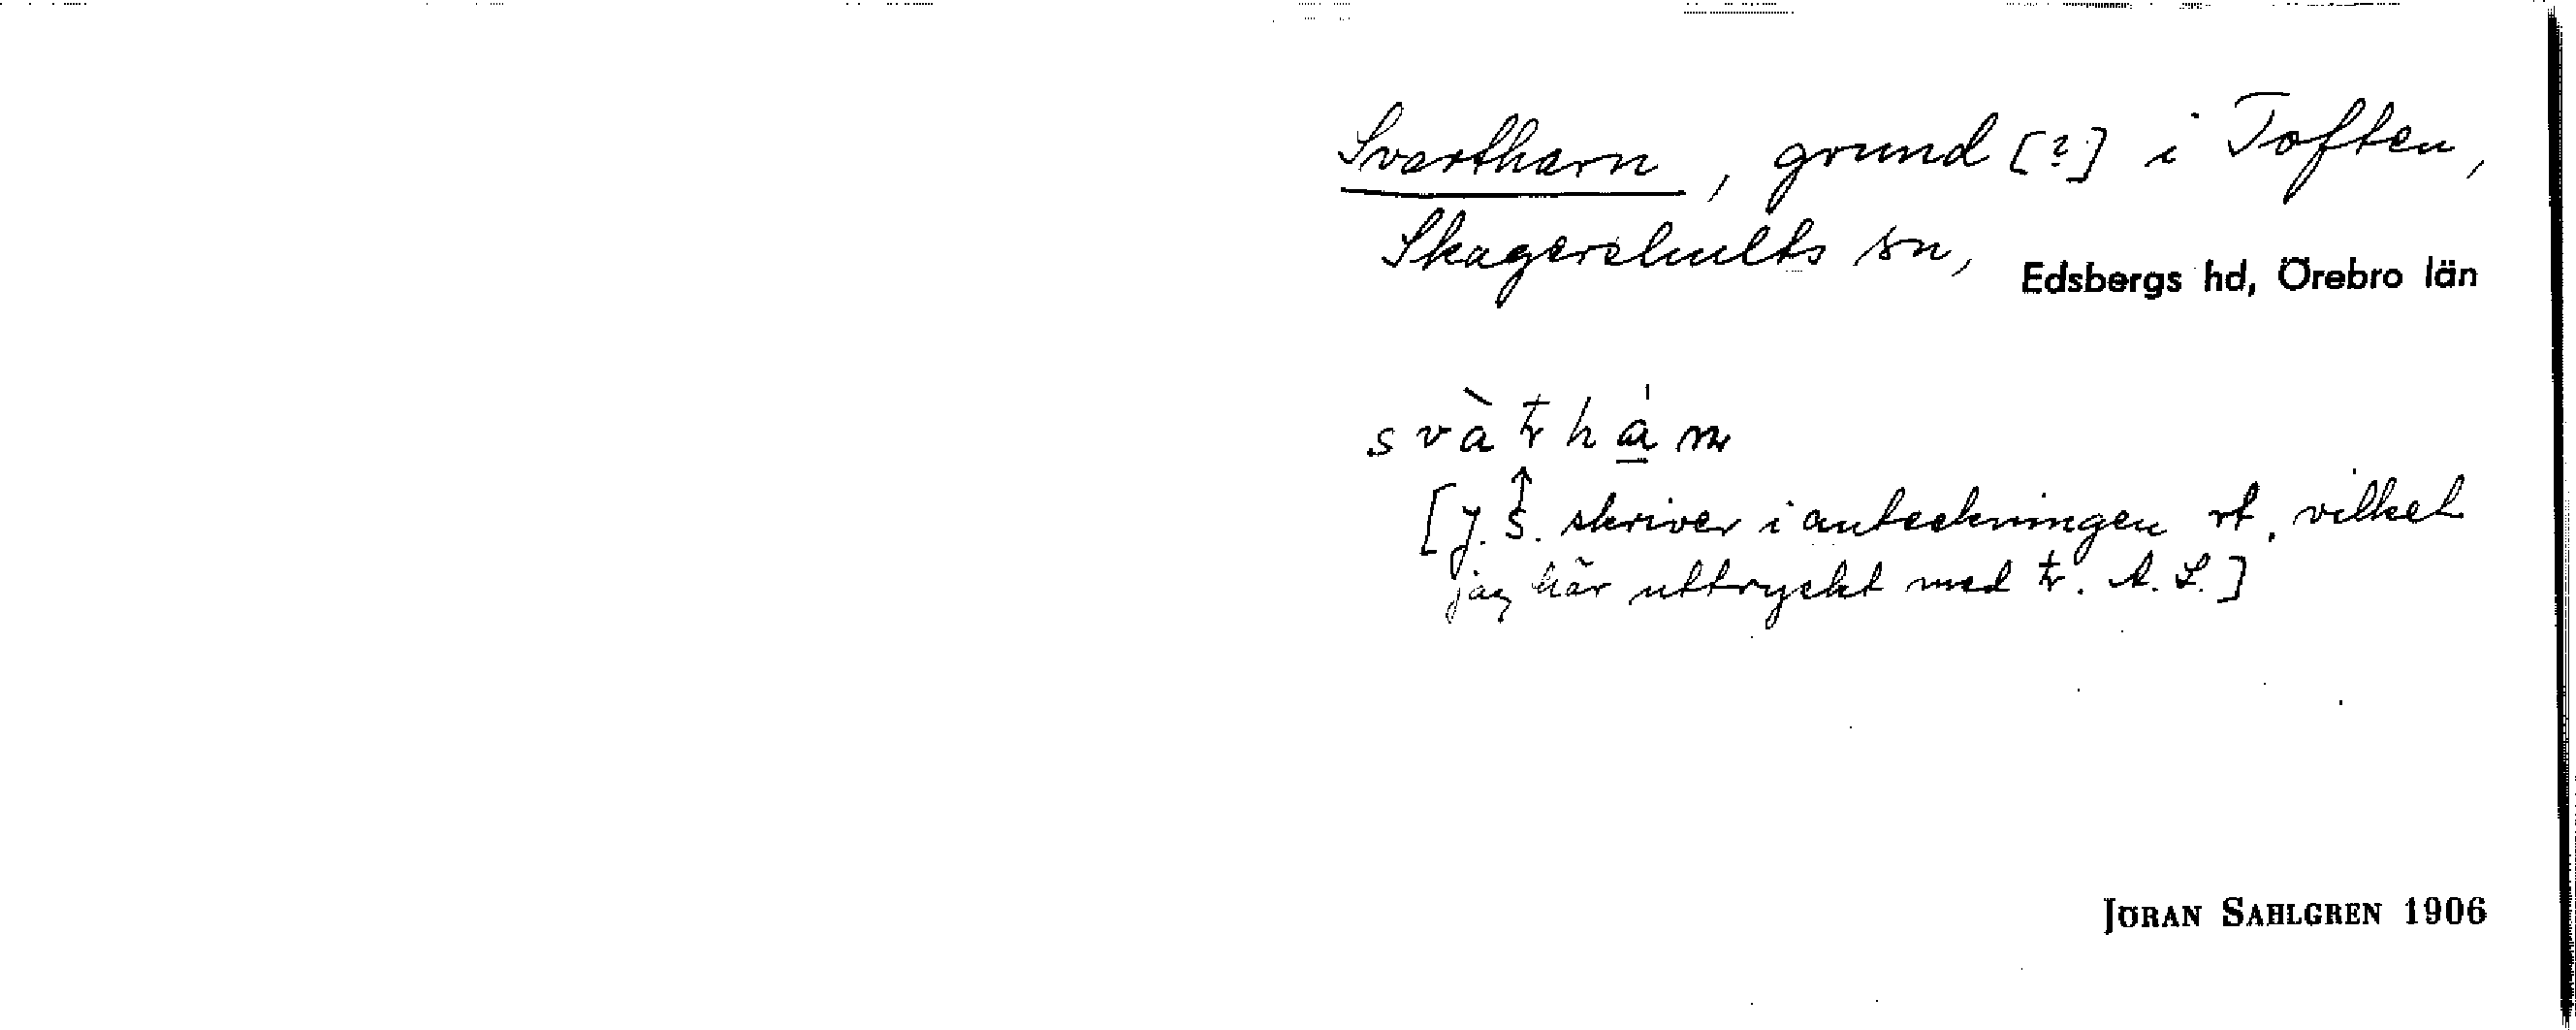 Svartharn, grund [?] i Toften,
Skagershults sn, Edsbergs hd, Örebro län
[J. S. skriver i anteckningen rt, vilket
jag här uttryckt med
JÖRAN SAHLGREN 1906